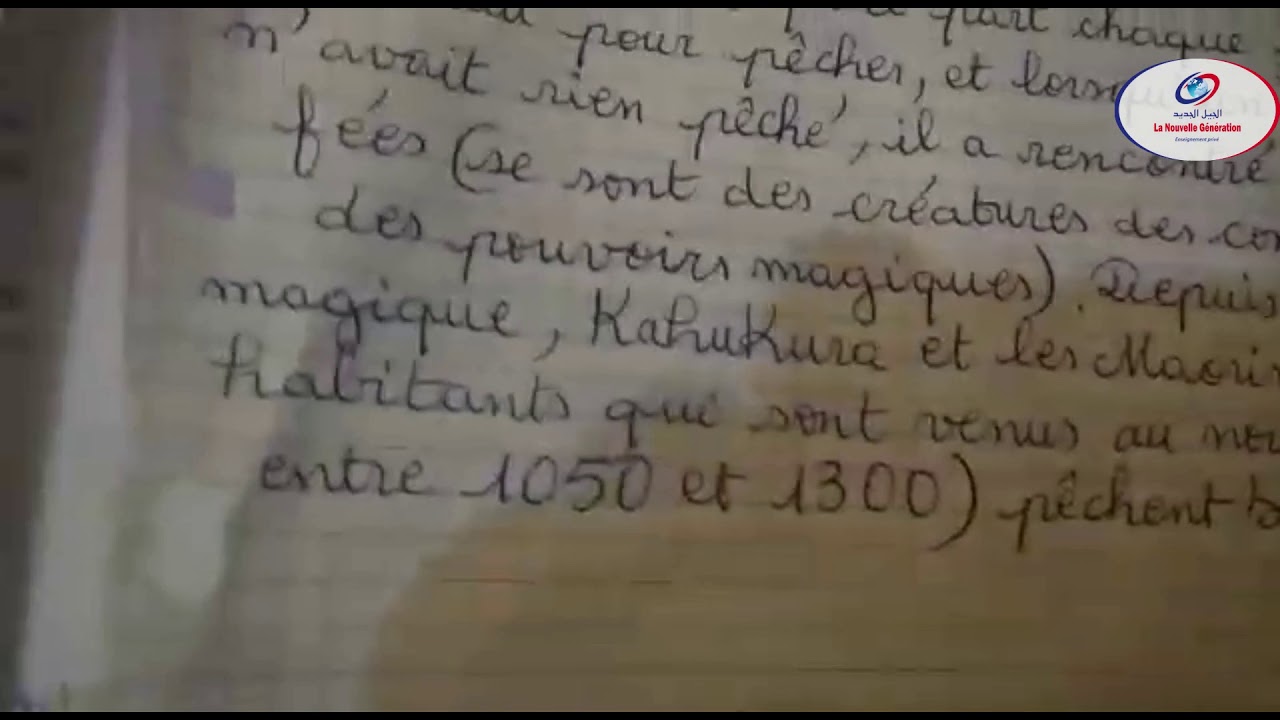 part chaque
n'avait pour pêcher, et
rien pêché, il a rencontré
fées (se sont des créatures des
des pouvoirs magiques). Depuis
magique, Kahukura et les Maori
habitants qui sont venus au
entre 1050 et 1300) pêchent
الجيل الجديد
La Nouvelle Génération
Enseignement privé